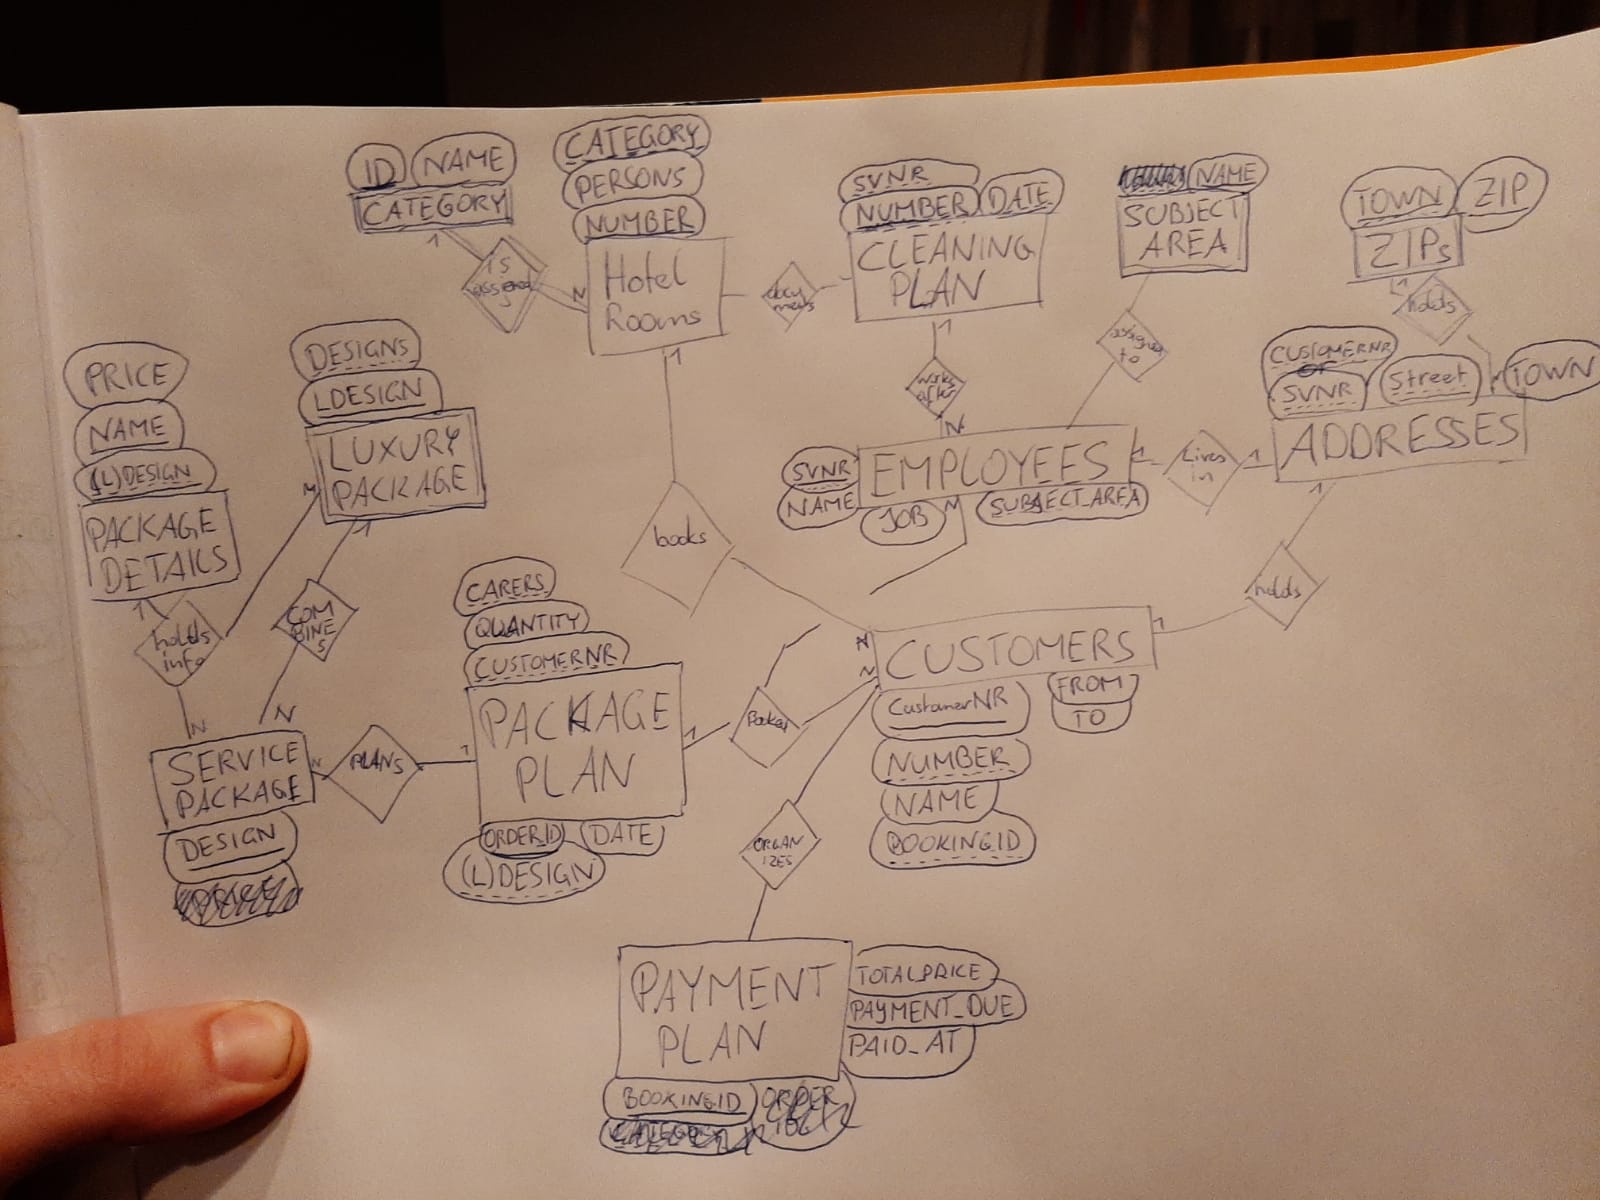 ID
NAME
CATEGORY
1
is
assigned
N
CATEGORY
PERSONS
NUMBER
Hotel
Rooms
1
docu
ments
SVNR
NUMBER
DATE
CLEANING
PLAN
1
works
after
N
NAME
SUBJECT
AREA
assigned
to
TOWN
ZIP
ZIPs
1
holds
N
CUSTOMERNR
or
SVNR
Street
TOWN
ADDRESSES
1
1
Lives
in
1
SVNR
NAME
EMPLOYEES
JOB
N
SUBJECT_AREA
PRICE
NAME
(L)DESIGN
PACKAGE
DETAILS
1
holds
info
N
DESIGNS
LDESIGN
LUXURY
PACKAGE
N
1
COM
BINE
S
N
books
holds
CARERS
QUANTITY
CUSTOMERNR
PACKAGE
PLAN
1
1
ORDERID
DATE
(L)DESIGN
SERVICE
PACKAGE
DESIGN
N
PLANS
N
N
CUSTOMERS
1
CustomerNR
FROM
TO
NUMBER
NAME
BOOKINGID
ORGAN
IZES
PAYMENT
PLAN
TOTALPRICE
PAYMENT_DUE
PAID_AT
BOOKINGID